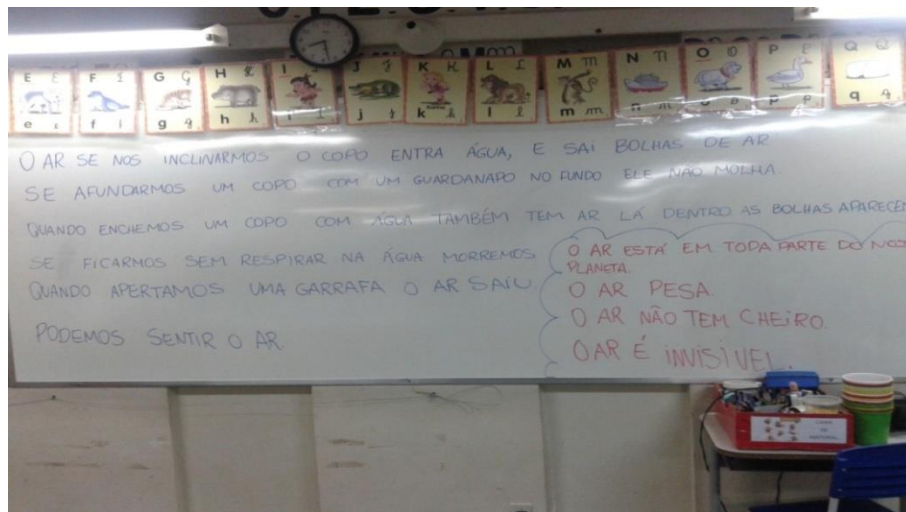 E F G H I J K L M N O P Q
e f g h i j k l m n o p q
O AR SE NOS INCLINARMOS O COPO ENTRA ÁGUA, E SAI BOLHAS DE AR
SE AFUNDARMOS UM COPO COM UM GUARDANAPO NO FUNDO ELE NÃO MOLHA.
QUANDO ENCHEMOS UM COPO COM ÁGUA TAMBÉM TEM AR LÁ DENTRO AS BOLHAS APARECEM
SE FICARMOS SEM RESPIRAR NA ÁGUA MORREMOS
QUANDO APERTAMOS UMA GARRAFA O AR SAIU.
PODEMOS SENTIR O AR
O AR ESTÁ EM TODA PARTE DO NOSSO
PLANETA.
O AR PESA.
O AR NÃO TEM CHEIRO.
O AR É INVISÍVEL.